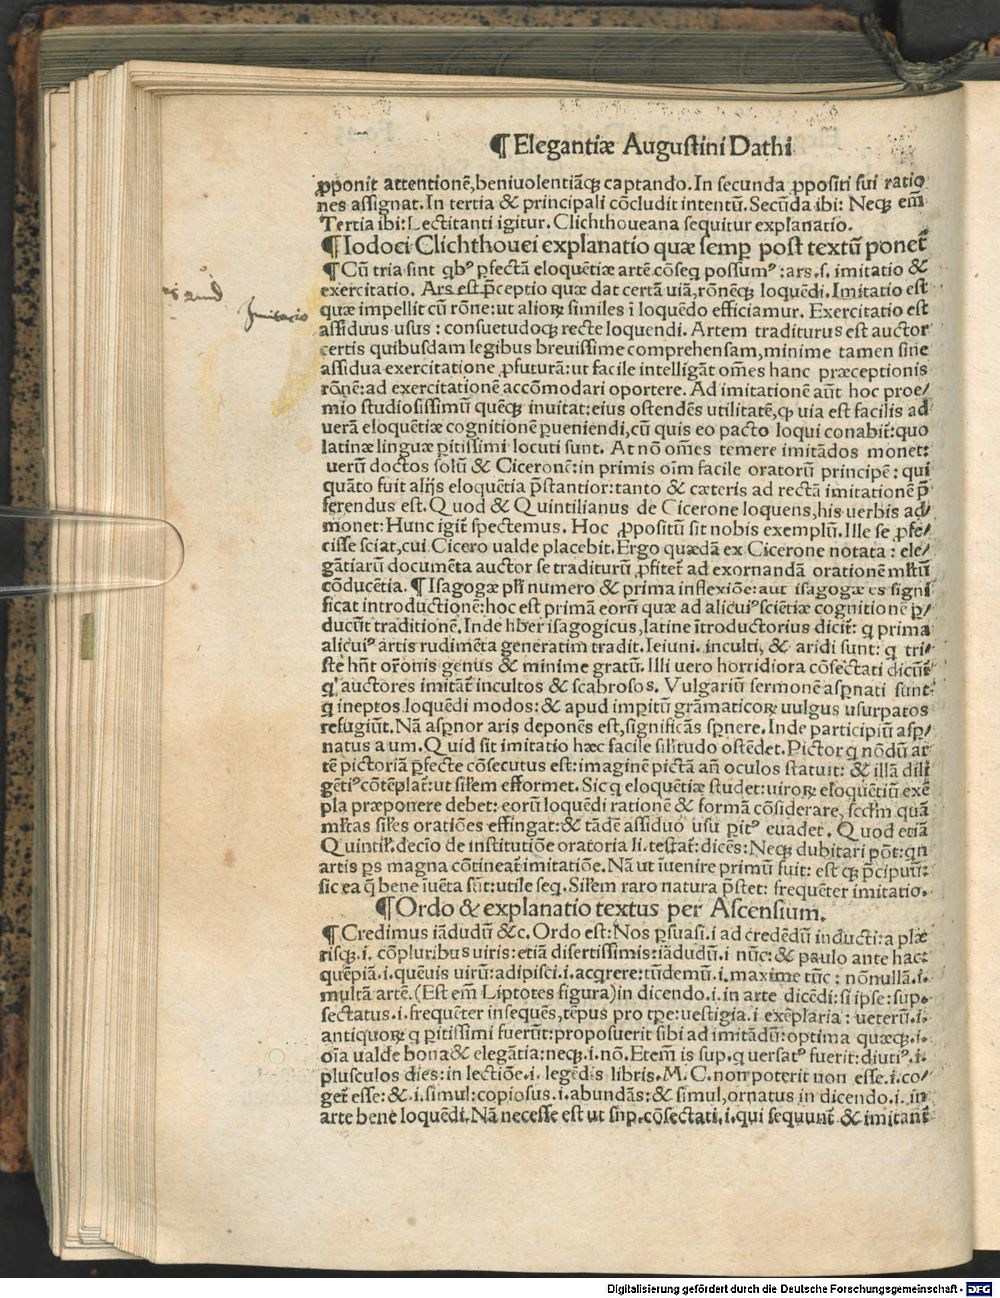 ¶ Elegantiæ Augustini Dathi
ꝓponit attentionē,beniuolentiāqꝫ captando.In secunda ꝓpositi sui ratio
nes assignat.In tertia & principali cōcludit intentū.Secūda ibi: Neqꝫ em̄
Tertia ibi:Lectitanti igitur.Clichthoueana sequitur explanatio.
¶ Iodoci Clichthouei explanatio quæ semꝑ post textū ponet̄
¶ Cū tria sint qbꝰ ꝑfectā eloquētiæ artē cōseq possumꝰ:ars.s. imitatio &
exercitatio. Ars est p̄ceptio quæ dat certā uiā,rōnēqꝫ loquēdi.Imitatio est
quæ impellit cū rōne:ut alioꝝ similes ī loquēdo efficiamur. Exercitatio est
assiduus usus : consuetudoqꝫ recte loquendi. Artem traditurus est auctor
certis quibusdam legibus breuissime comprehensam,minime tamen sine
assidua exercitatione ꝓfuturā:ut facile intelligāt om̄es hanc præceptionis
rōnē:ad exercitationē accōmodari oportere. Ad imitationē aūt hoc proe/
mio studiosissimū quēqꝫ inuitat:eius ostendēs utilitatē,ꝙ uia est facilis ad
uerā eloquētiæ cognitionē ꝑueniendi,cū quis eo pacto loqui conabit̄:quo
latinæ linguæ ꝑitissimi locuti sunt. At nō om̄es temere imitādos monet:
uerū doctos solū & Ciceronē:in primis oīm facile oratorū principē: qui
quāto fuit alijs eloquētia p̄stantior:tanto & cæteris ad rectā imitationē p̄
ferendus est.Quod & Quintilianus de Cicerone loquens,his uerbis ad/
monet:Hunc igit̄ spectemus. Hoc ꝓpositū sit nobis exemplū.Ille se ꝓfe/
cisse sciat,cui Cicero ualde placebit.Ergo quædā ex Cicerone notata : ele/
gātiarū documēta auctor se traditurū ꝓfitet̄ ad exornandā orationē ml̄tū
cōducētia. ¶ Isagogæ pl̄i numero & prima inflexiōe:aut isagogæ es signi
ficat introductionē:hoc est primā eorū quæ ad alicuiꝰ sciētiæ cognitionē ꝑ/
ducūt traditionē.Inde liber isagogicus,latine ītroductorius dicit̄: q prima
alicuiꝰ artis rudimēta generatim tradit.Ieiuni. inculti, & aridi sunt: q tri/
ste hn̄t or̄onis genus & minime gratū. Illi uero horridiora cōsectati dicūt̄
q auctores imitāt̄ incultos & scabrosos. Vulgariū sermonē aspnati sunt:
q ineptos loquēdi modos: & apud imꝑitū grāmaticoꝝ uulgus usurpatos
refugiūt. Nā aspnor aris deponēs est,significās spnere. Inde participiū asp/
natus a um. Quid sit imitatio hæc facile sil̄itudo ostēdet.Pictor q nōdū ar
tē pictoriā ꝑfecte cōsecutus est:imaginē pictā an̄ oculos statuit: & illā dili
gētiꝰ cōtēplat̄:ut sil̄em efformet. Sic q eloquētiæ studet:uiroꝝ eloquētiū exē
pla præponere debet:eorū loquēdi rationē & formā cōsiderare, secd̄m quā
ml̄tas sil̄es oratiōes effingat:& tādē assiduo usu ꝑitꝰ euadet. Quod etiā
Quintil̄.decīo de institutiōe oratoria li.testat̄: dicēs: Neqꝫ dubitari pōt:qn
artis ps magna cōtineat̄ imitatiōe. Nā ut īuenire primū fuit: est qꝫ p̄cipuū:
sic ea q̄ bene iuēta sūt:utile seq. Sil̄em raro natura p̄stet: frequēter imitatio.
¶ Ordo & explanatio textus per Ascensium.
¶ Credimus iādudū &c.Ordo est:Nos ꝑsuasi.i ad credēdū inducti:a plæ
risqꝫ.i. cōpluribus uiris:etiā disertissimis:iādudū.i nūc:& paulo ante hac:
quēpiā.i.quēuis uirū:adipisci.i.acqrere:tūdemū.i.maxime tūc: nōnullā.i.
multā artē.(Est em̄ Liptotes figura)in dicendo.i.in arte dicēdi:si ipse:sup.
sectatus.i.frequēter insequēs,tēpus pro tpe:uestigia.i exēplaria: ueterū.i.
antiquoꝝ q ꝑitissimi fuerūt:proposuerit sibi ad imitādū:optima quæqꝫ.i.
oīa ualde bona & elegātia:neqꝫ.i.nō.Etem̄ is sup.q uersatꝰ fuerit:diutiꝰ.i.
plusculos dies:in lectiōe.i. legēdis libris.M.C.non poterit non esse.i.co/
get̄ esse:&.i.simul:copiosus.i.abundās:& simul,ornatus in dicendo.i.in
arte bene loquēdi.Nā necesse est ut sup.cōsectati.i.qui sequunt̄ & imitant̄
Imitatio
Digitalisierung gefördert durch die Deutsche Forschungsgemeinschaft - DFG